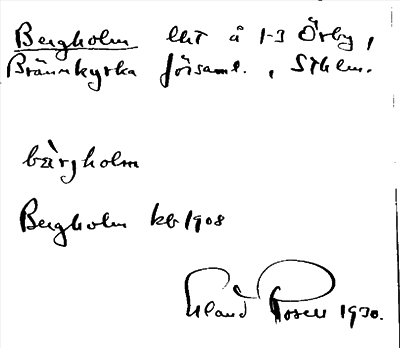 Bergholm lht å 1-3 Örby,
Brännkyrka församl., Sthlm.
bärjholm
Bergholm kb 1908
Erland Rosell 1930.